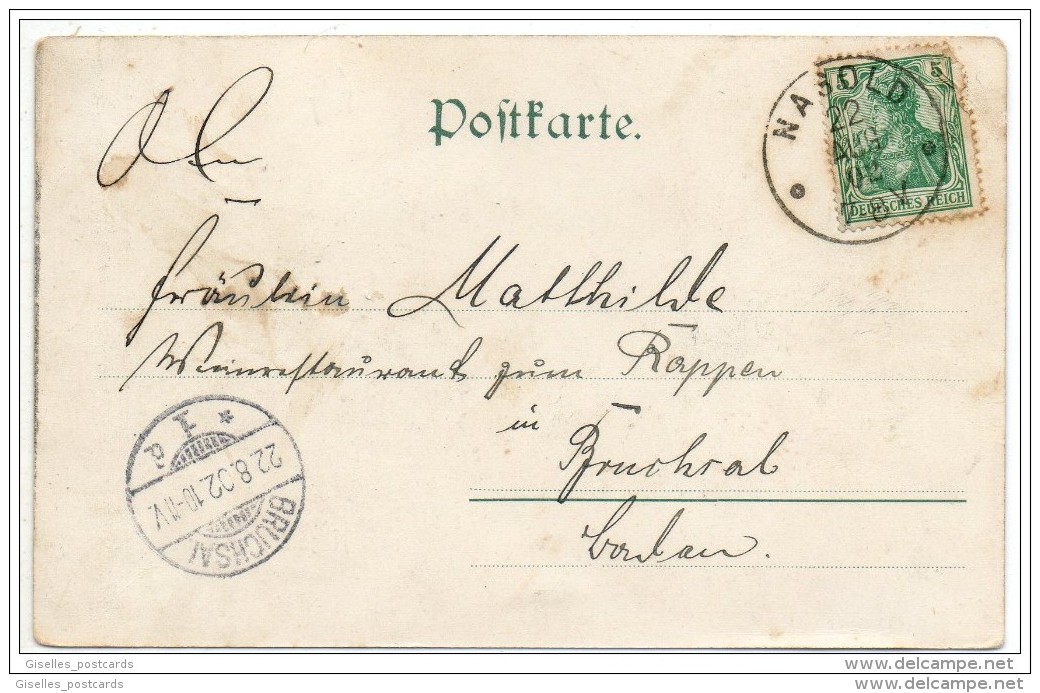 Postkarte.
5
NAGOLD
22
AUG
02
8 V
DEUTSCHES REICH
An
Fräulein Matthilde
Weinrestaurant zum Rappen
in
Bruchsal
Baden.
22.8.02 10-11V.
BRUCHSAL
Giselles_postcards
www.delcampe.net
Giselles_postcards
www.delcampe.net